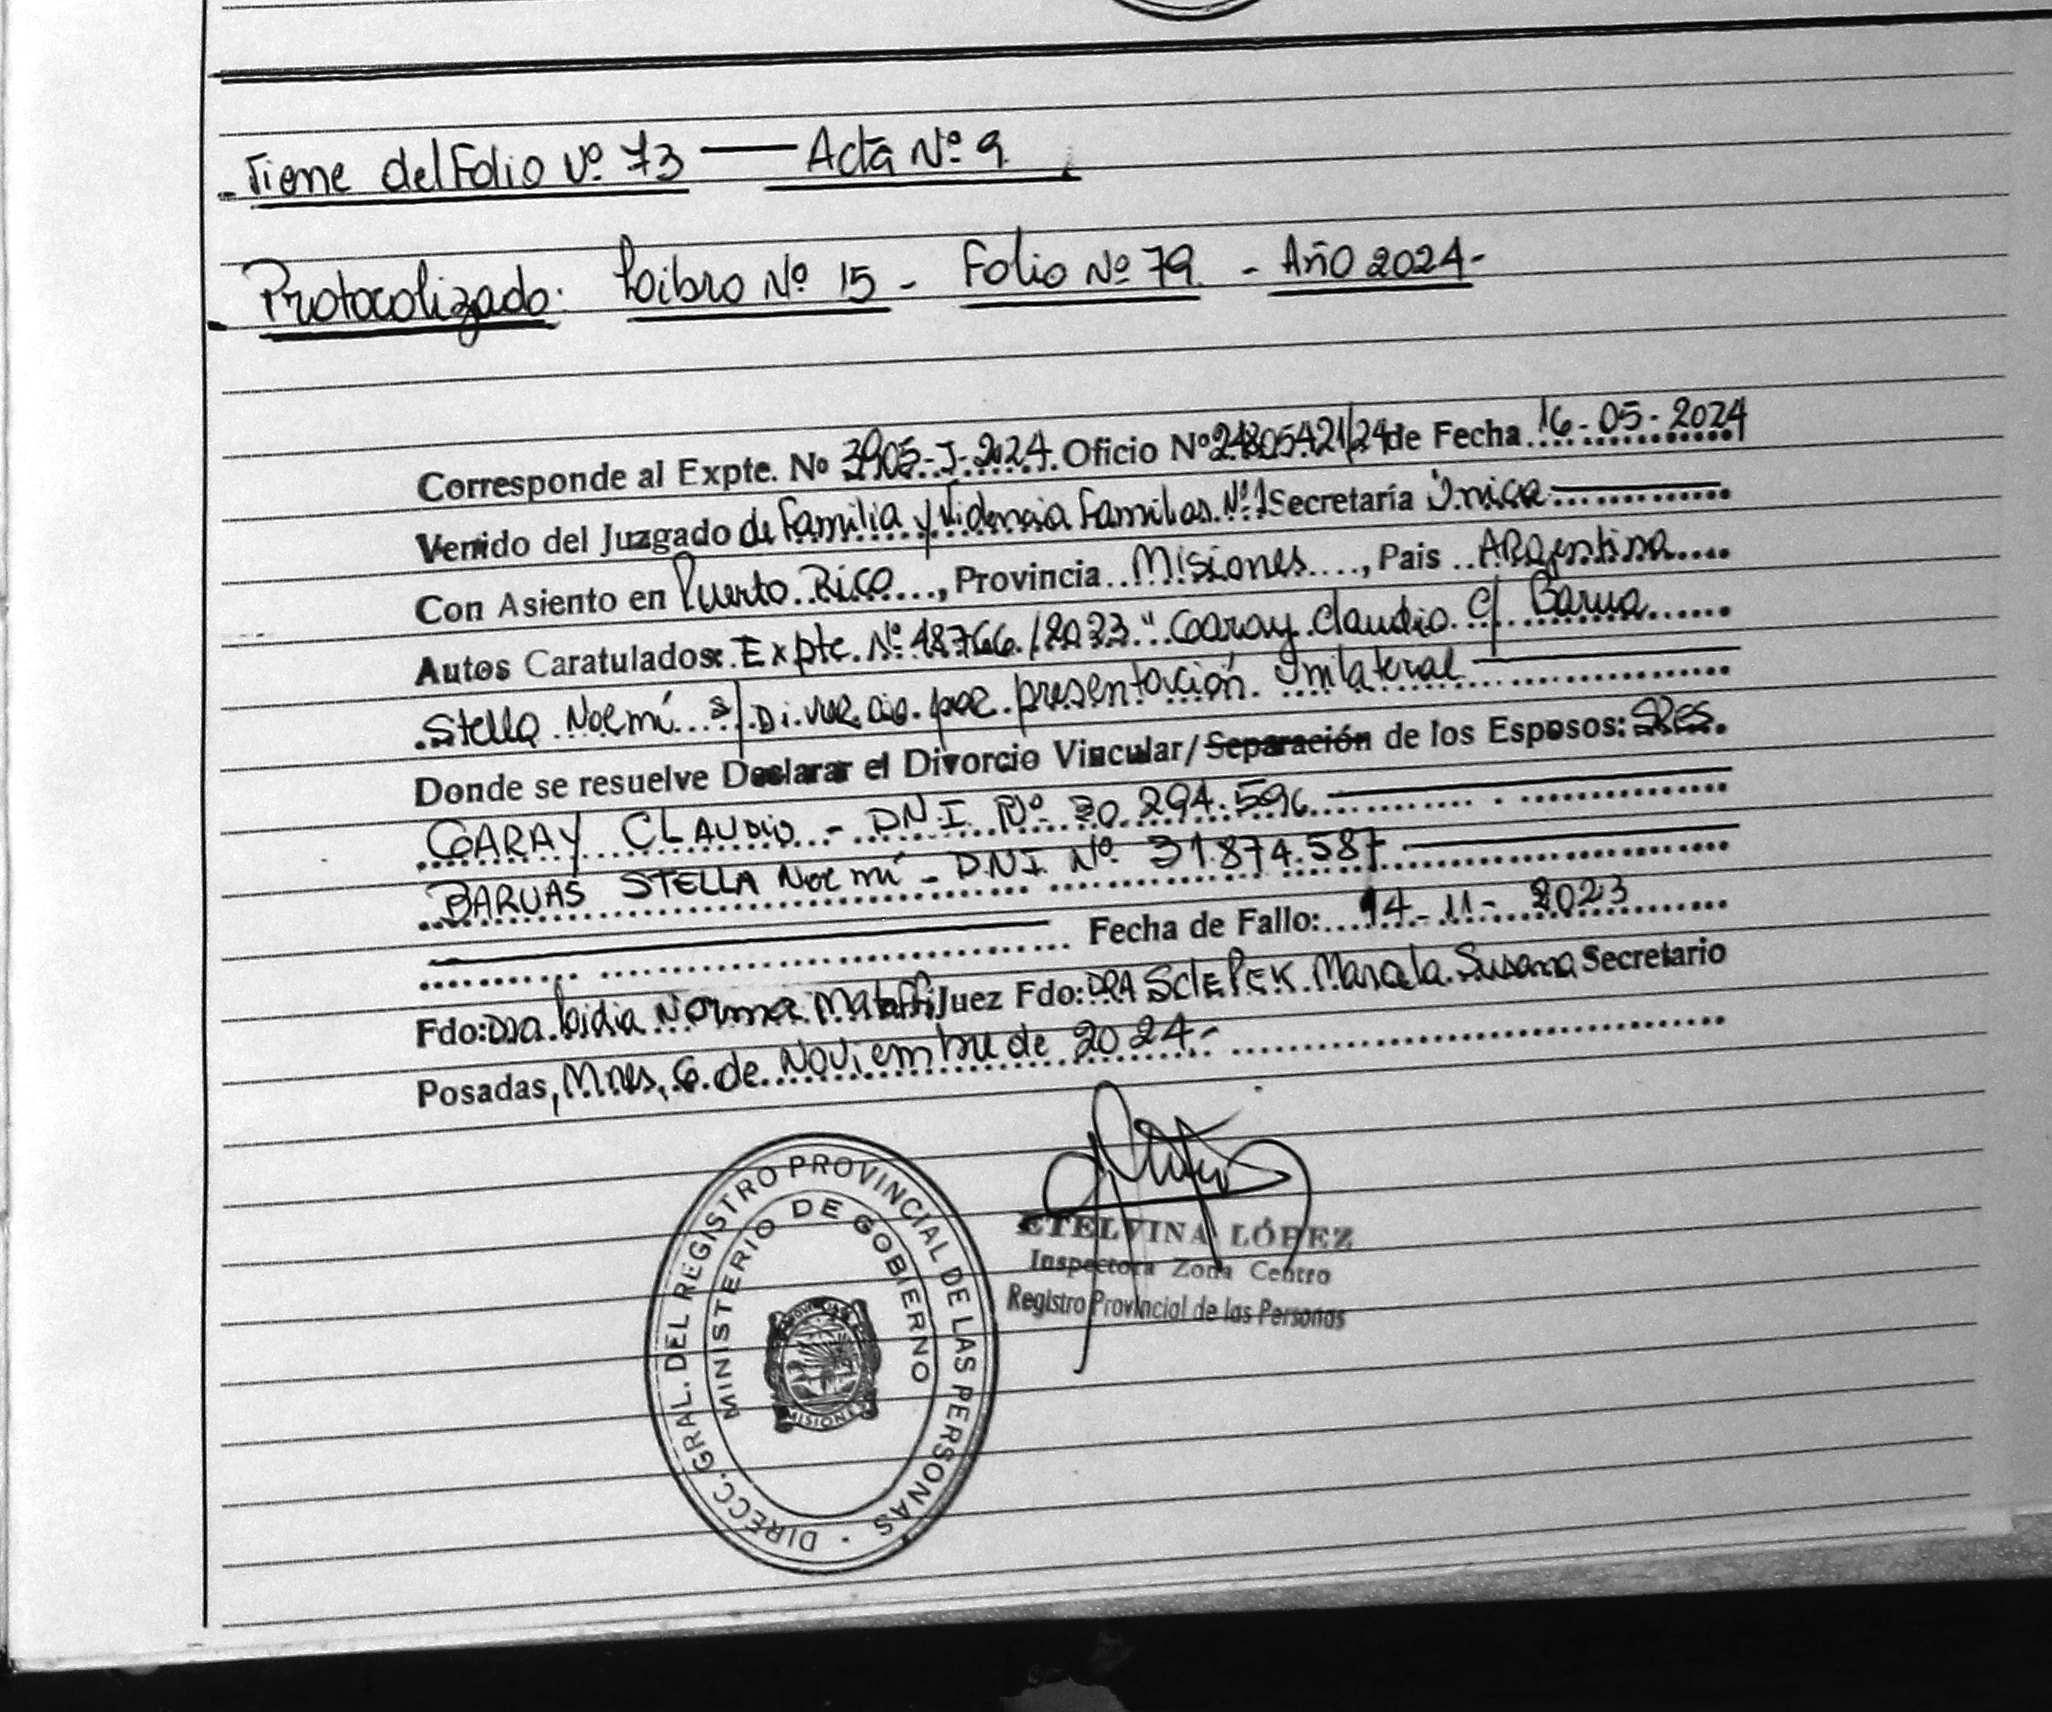 - Viene del Folio Nº 73 — Acta Nº 9
- Protocolizado: Libro Nº 15 - Folio Nº 79 - Año 2024-
Corresponde al Expte. Nº 3905-J-2024. Oficio Nº 24805421/24 de Fecha 16-05-2024
Venido del Juzgado de Familia y Violencia Familiar Nº 1 Secretaría Única
Con Asiento en Puerto Rico, Provincia Misiones, Pais Argentina
Autos Caratulados: Expte. Nº 48766/2023 "Garay Claudio c/ Barua
Stella Noemí s/ Divorcio por presentación Unilateral
Donde se resuelve Declarar el Divorcio Vincular/Separación de los Esposos: SRes.
GARAY CLAUDIO - DNI Nº 30.294.596
BARUAS STELLA Noemí - DNI Nº 31.874.587
Fecha de Fallo: 14-11-2023
Fdo: Dra. Lidia Norma Juez Fdo: DRA Marcela Susana Secretario
Posadas, Mnes, 6 de Noviembre de 2024-
DIRECC. GRAL. DEL REGISTRO PROVINCIAL DE LAS PERSONAS
MINISTERIO DE GOBIERNO
MISIONES
ETELVINA LÓPEZ
Inspectora Zona Centro
Registro Provincial de las Personas